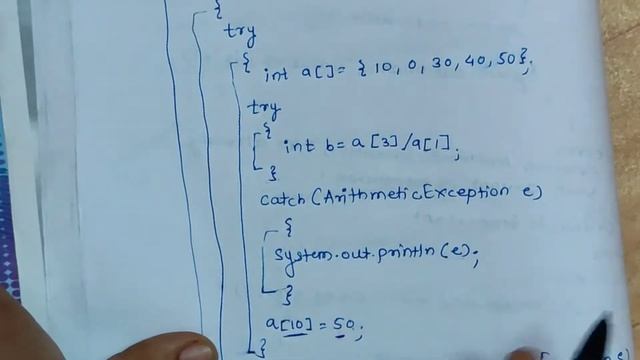 {
try
{
int a[] = {10, 0, 30, 40, 50};
try
{
int b = a[3]/a[1];
}
catch (ArithmeticException e)
{
System.out.println(e);
}
a[10] = 50;
}
e)